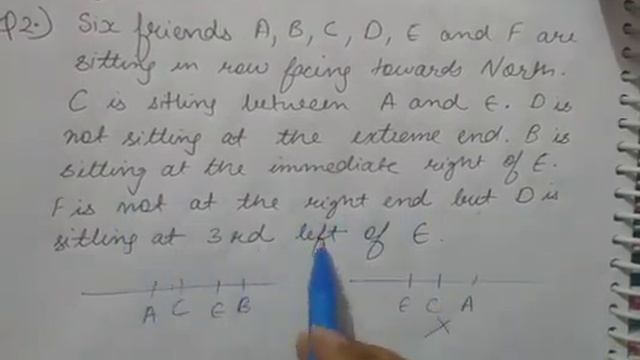 Q2.) Six friends A, B, C, D, E and F are
sitting in row facing towards North.
C is sitling between A and E. D is
not sitting at the extreme end. B is
sitting at the immediate right of E.
F is not at the right end but D is
sitling at 3rd left of E.
A C E B
E C A
X